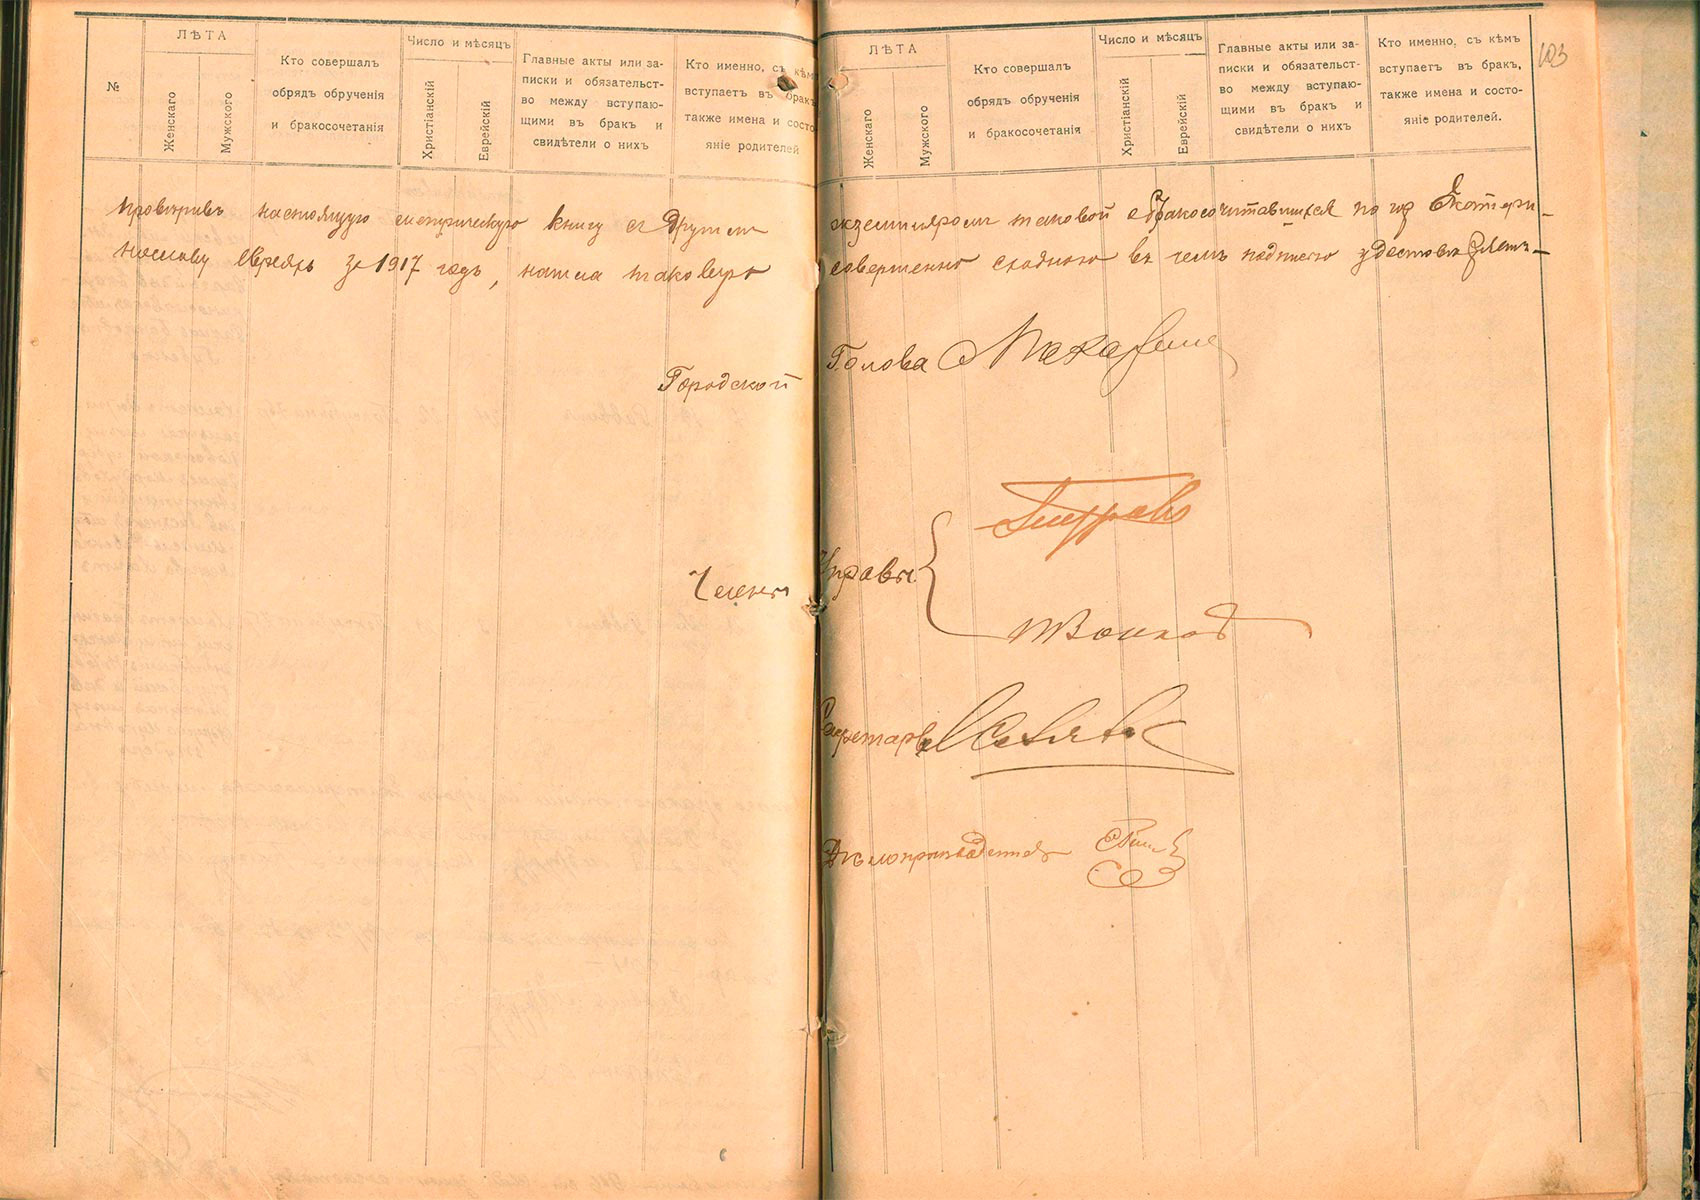 №
ЛѢТА
Женскаго
Мужского
Кто совершалъ
обрядъ обрученія
и бракосочетанія
Число и мѣсяцъ
Христіанскій
Еврейскій
Главные акты или за-
писки и обязательст-
во между вступаю-
щими въ бракъ и
свидѣтели о нихъ
Кто именно, съ кѣмъ
вступаетъ въ бракъ
также имена и состо
яніе родителей
ЛѢТА
Женскаго
Мужского
Кто совершалъ
обрядъ обрученія
и бракосочетанія
Число и мѣсяцъ
Христіанскій
Еврейскій
Главные акты или за-
писки и обязательст-
во между вступаю-
щими въ бракъ и
свидѣтели о нихъ
Кто именно, съ кѣмъ
вступаетъ въ бракъ,
также имена и состо-
яніе родителей.
103
Провѣривъ настоящую метрическую книгу съ другимъ экземпляромъ таковой о бракосочитавшихся по гор Екатери-
нославу Евреяхъ за 1917 годъ, нашла таковую совершенно сходною въ чемъ подписью удостовѣряетъ-
Городской Голова
Члены Управы
Секретарь
Дѣлопроизводитель